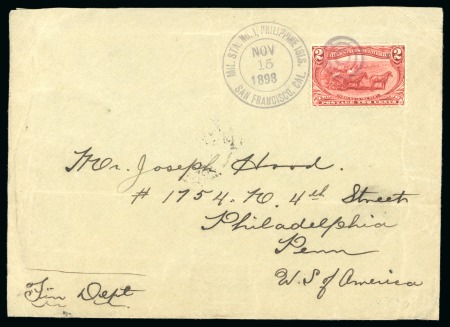 MIL. STA. No. 1, PHILIPPINE ISLS.
NOV
15
1898
SAN FRANCISCO, CAL.
2 2
POSTAGE TWO CENTS
Mr. Joseph Hood.
# 1754. N. 4th Street
Philadelphia
Penn
U.S of America
Fin Dept